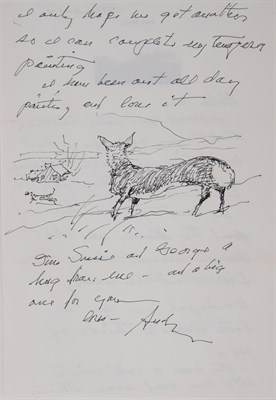 I only hope we get another
so I can complete my tempera
painting
I have been out all day
painting and love it
Give Susie and Georgie a
hug from me - and a big
one for you
Andy